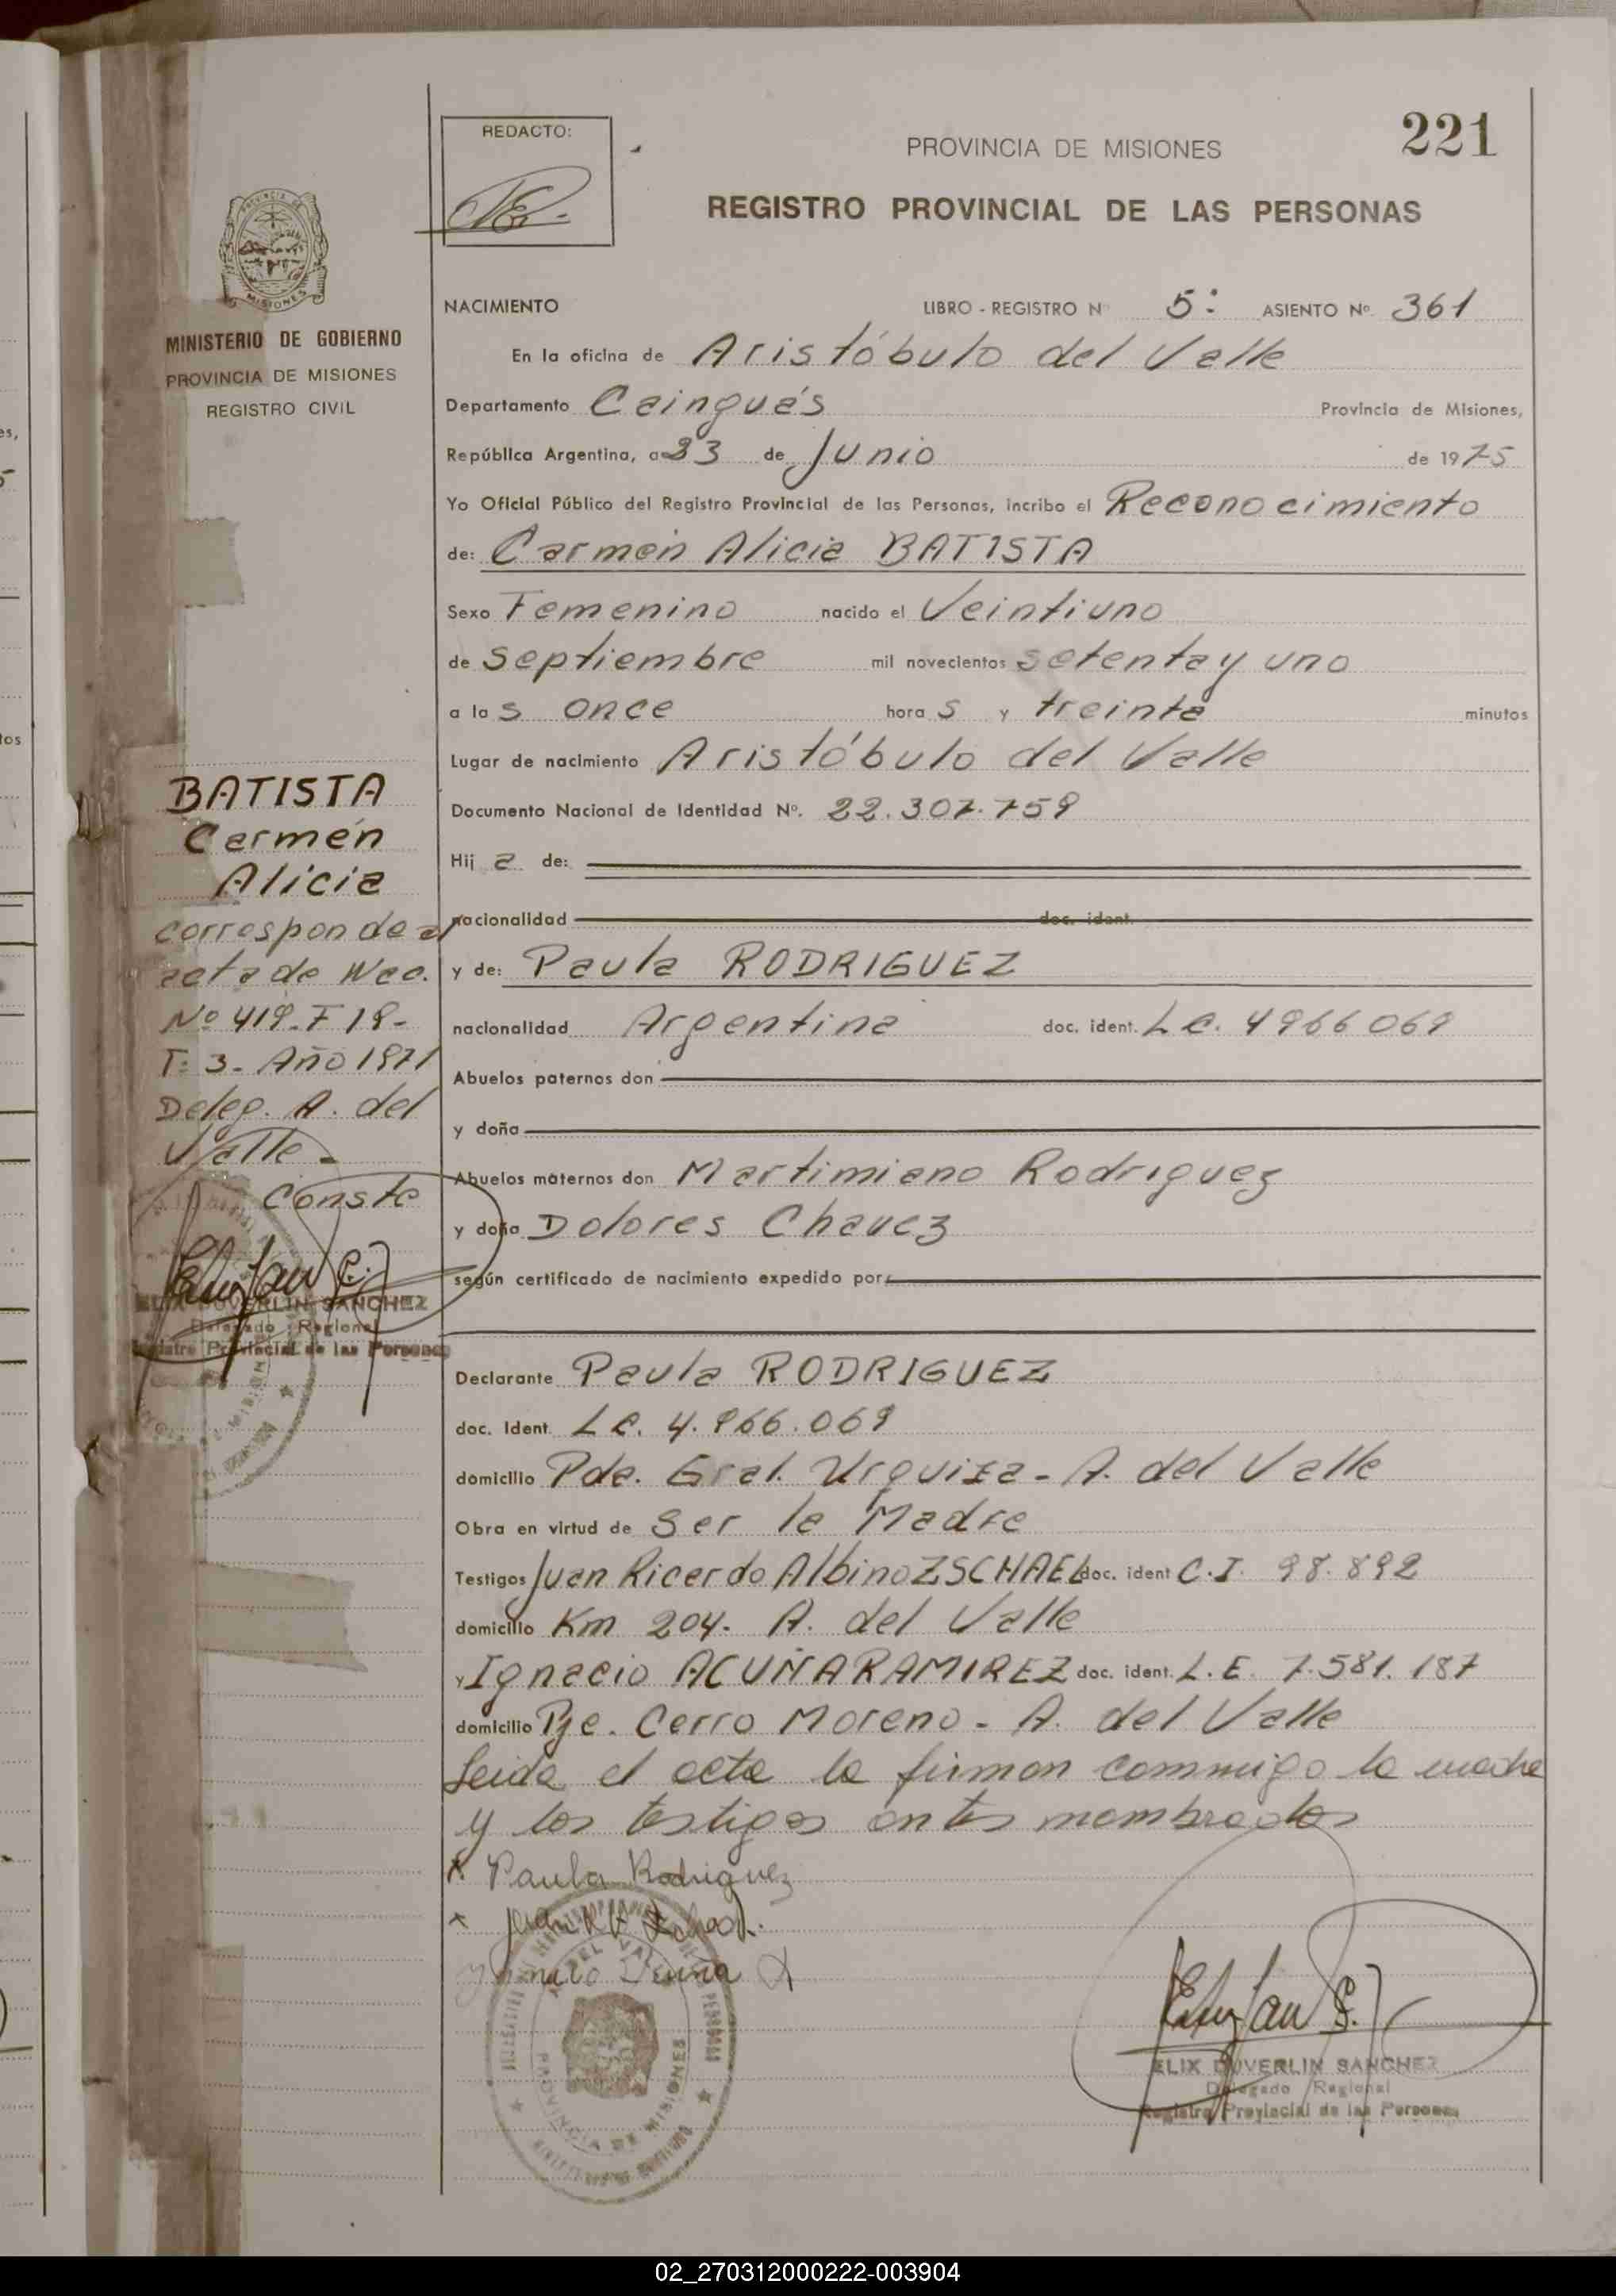 221
REDACTO:
PROVINCIA DE MISIONES
REGISTRO PROVINCIAL DE LAS PERSONAS
MINISTERIO DE GOBIERNO
PROVINCIA DE MISIONES
REGISTRO CIVIL
NACIMIENTO LIBRO - REGISTRO Nº 5: ASIENTO Nº. 361
En la oficina de Aristóbulo del Valle
Departamento Cainguás Provincia de Misiones,
República Argentina, a 23 de Junio de 1975
Yo Oficial Público del Registro Provincial de las Personas, incribo el Reconocimiento
de: Carmen Alicia BATISTA
Sexo Femenino nacido el Veintiuno
de Septiembre mil novecientos setenta y uno
a las once horas y treinta minutos
Lugar de nacimiento Aristóbulo del Valle
Documento Nacional de Identidad Nº. 22.307.759
Hija de:
nacionalidad doc. ident.
y de: Paula RODRIGUEZ
nacionalidad Argentina doc. ident. L.C. 4966069
Abuelos paternos don
y doña
Abuelos maternos don Martimiano Rodriguez
y doña Dolores Chavez
según certificado de nacimiento expedido por:
Declarante Paula RODRIGUEZ
doc. Ident. L.C. 4.966.069
domicilio Pda. Gral. Urquiza - A. del Valle
Obra en virtud de Ser la Madre
Testigos Juan Ricardo Albino ZSCHAEL doc. ident C.I. 98.892
domicilio Km 204. A. del Valle
y Ignacio ACUÑA RAMIREZ doc. ident. L.E. 7.581.187
domicilio Pje. Cerro Moreno - A. del Valle
Leida el acta la firman commigo la madre
y los testigos antes mombrados
Paula Rodriguez
BATISTA
Carmén
Alicia
corresponde al
acta de Nac.
Nº 419. F 19-
T: 3. Año 1971
Deleg. A. del
Valle-
Conste
ELIX DUVERLIN SANCHEZ
Delegado Regional
Registro Provincial de las Personas
PROVINCIA DE MISIONES
ELIX DUVERLIN SANCHEZ
Delegado Regional
Registro Provincial de las Personas
02_270312000222-003904